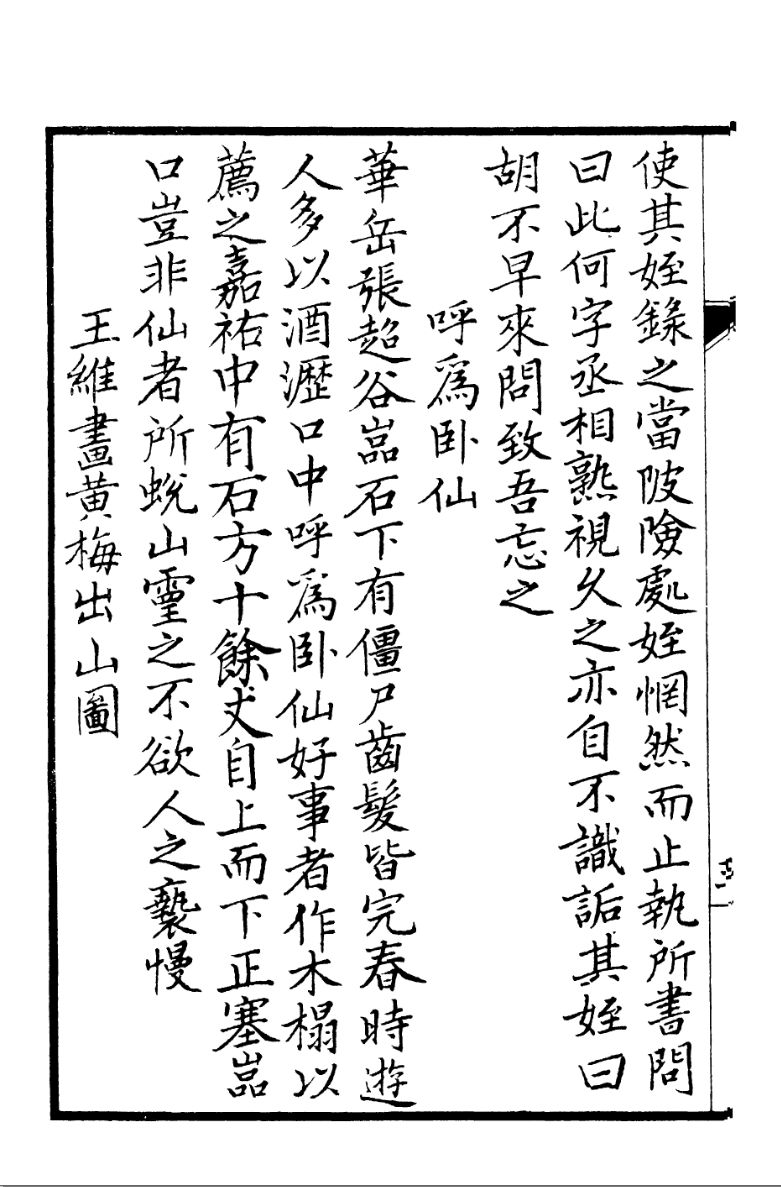 使其姪錄之當陂險處姪惘然而止執所書問
曰此何字丞相熟視久之亦自不識詬其姪曰
胡不早來問致吾忘之
呼爲卧仙
華岳張超谷嵓石下有僵尸齒髮皆完春時遊
人多以酒瀝口中呼爲卧仙好事者作木榻以
薦之嘉祐中有石方十餘丈自上而下正塞嵓
口豈非仙者所蛻山靈之不欲人之褻慢
王維畫黄梅出山圖